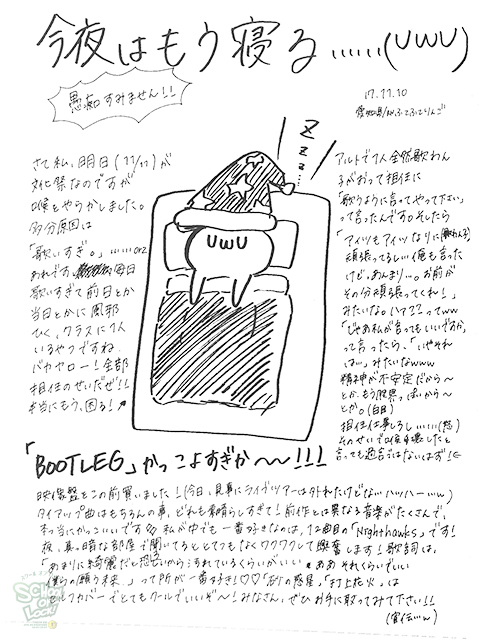 今夜はもう寝る……(UWU)
愚痴すみません!!
17.11.10
愛知県/
さて私、明日(11/11)が
文化祭なのですが
喉をやらかしました。
多分原因は
「歌いすぎ。」……orz
あれです、毎日
歌いすぎて前日とか
当日とかに風邪
ひく、クラスに1人
いるやつですね
バカヤロー!全部
担任のせいだぜ!!
本当にもう、困る!
Zzz...
UWU
アルトで1人全然歌わん
子がおって担任に
「歌うように言ってやって下さい」
って言ったんですのそしたら
「アイツもアイツなりに(歌わん子)
頑張ってるし俺も言った
けど、あんまり…。お前が
その分頑張ってくれ!」
みたいな。ハァ??ってww
「じゃあ私が言ってもいいですか」
って言ったら、「いやそれ
は…」みたいなwww
精神が不安定だから〜
とか、もう限界っぽいから〜
とか。(白目)
担任仕事しろし……(怒)
そのせいで喉を壊したと
言っても過言ではないはず!
「BOOTLEG」かっこよすぎか〜〜!!!
映像盤をこの前買いました!(今日、見事にライブツアーは外れたけどな ハッハーｗｗ)
タイアップ曲はもちろんの事、どれも素晴らしすぎて!前作とは異なる音がたくさんで、
本当にかっこいいです 私が中でも一番好きなのは、12曲目の「Nighthawks」です!
夜、真っ暗な部屋で聞いてるととてつもなくワクワクして興奮します!歌詞は、
「あまりに綺麗だと恐いから汚れているくらいがいい ああそれくらいでいい
僕らの願う未来…」って所が一番好き!♡♡「砂の惑星」「打上花火」は
セルフカバーでとてもクールでいいぞ〜!みなさん、ぜひお手に取ってみて下さい!!
(宣伝ｗ)
School of Lock!